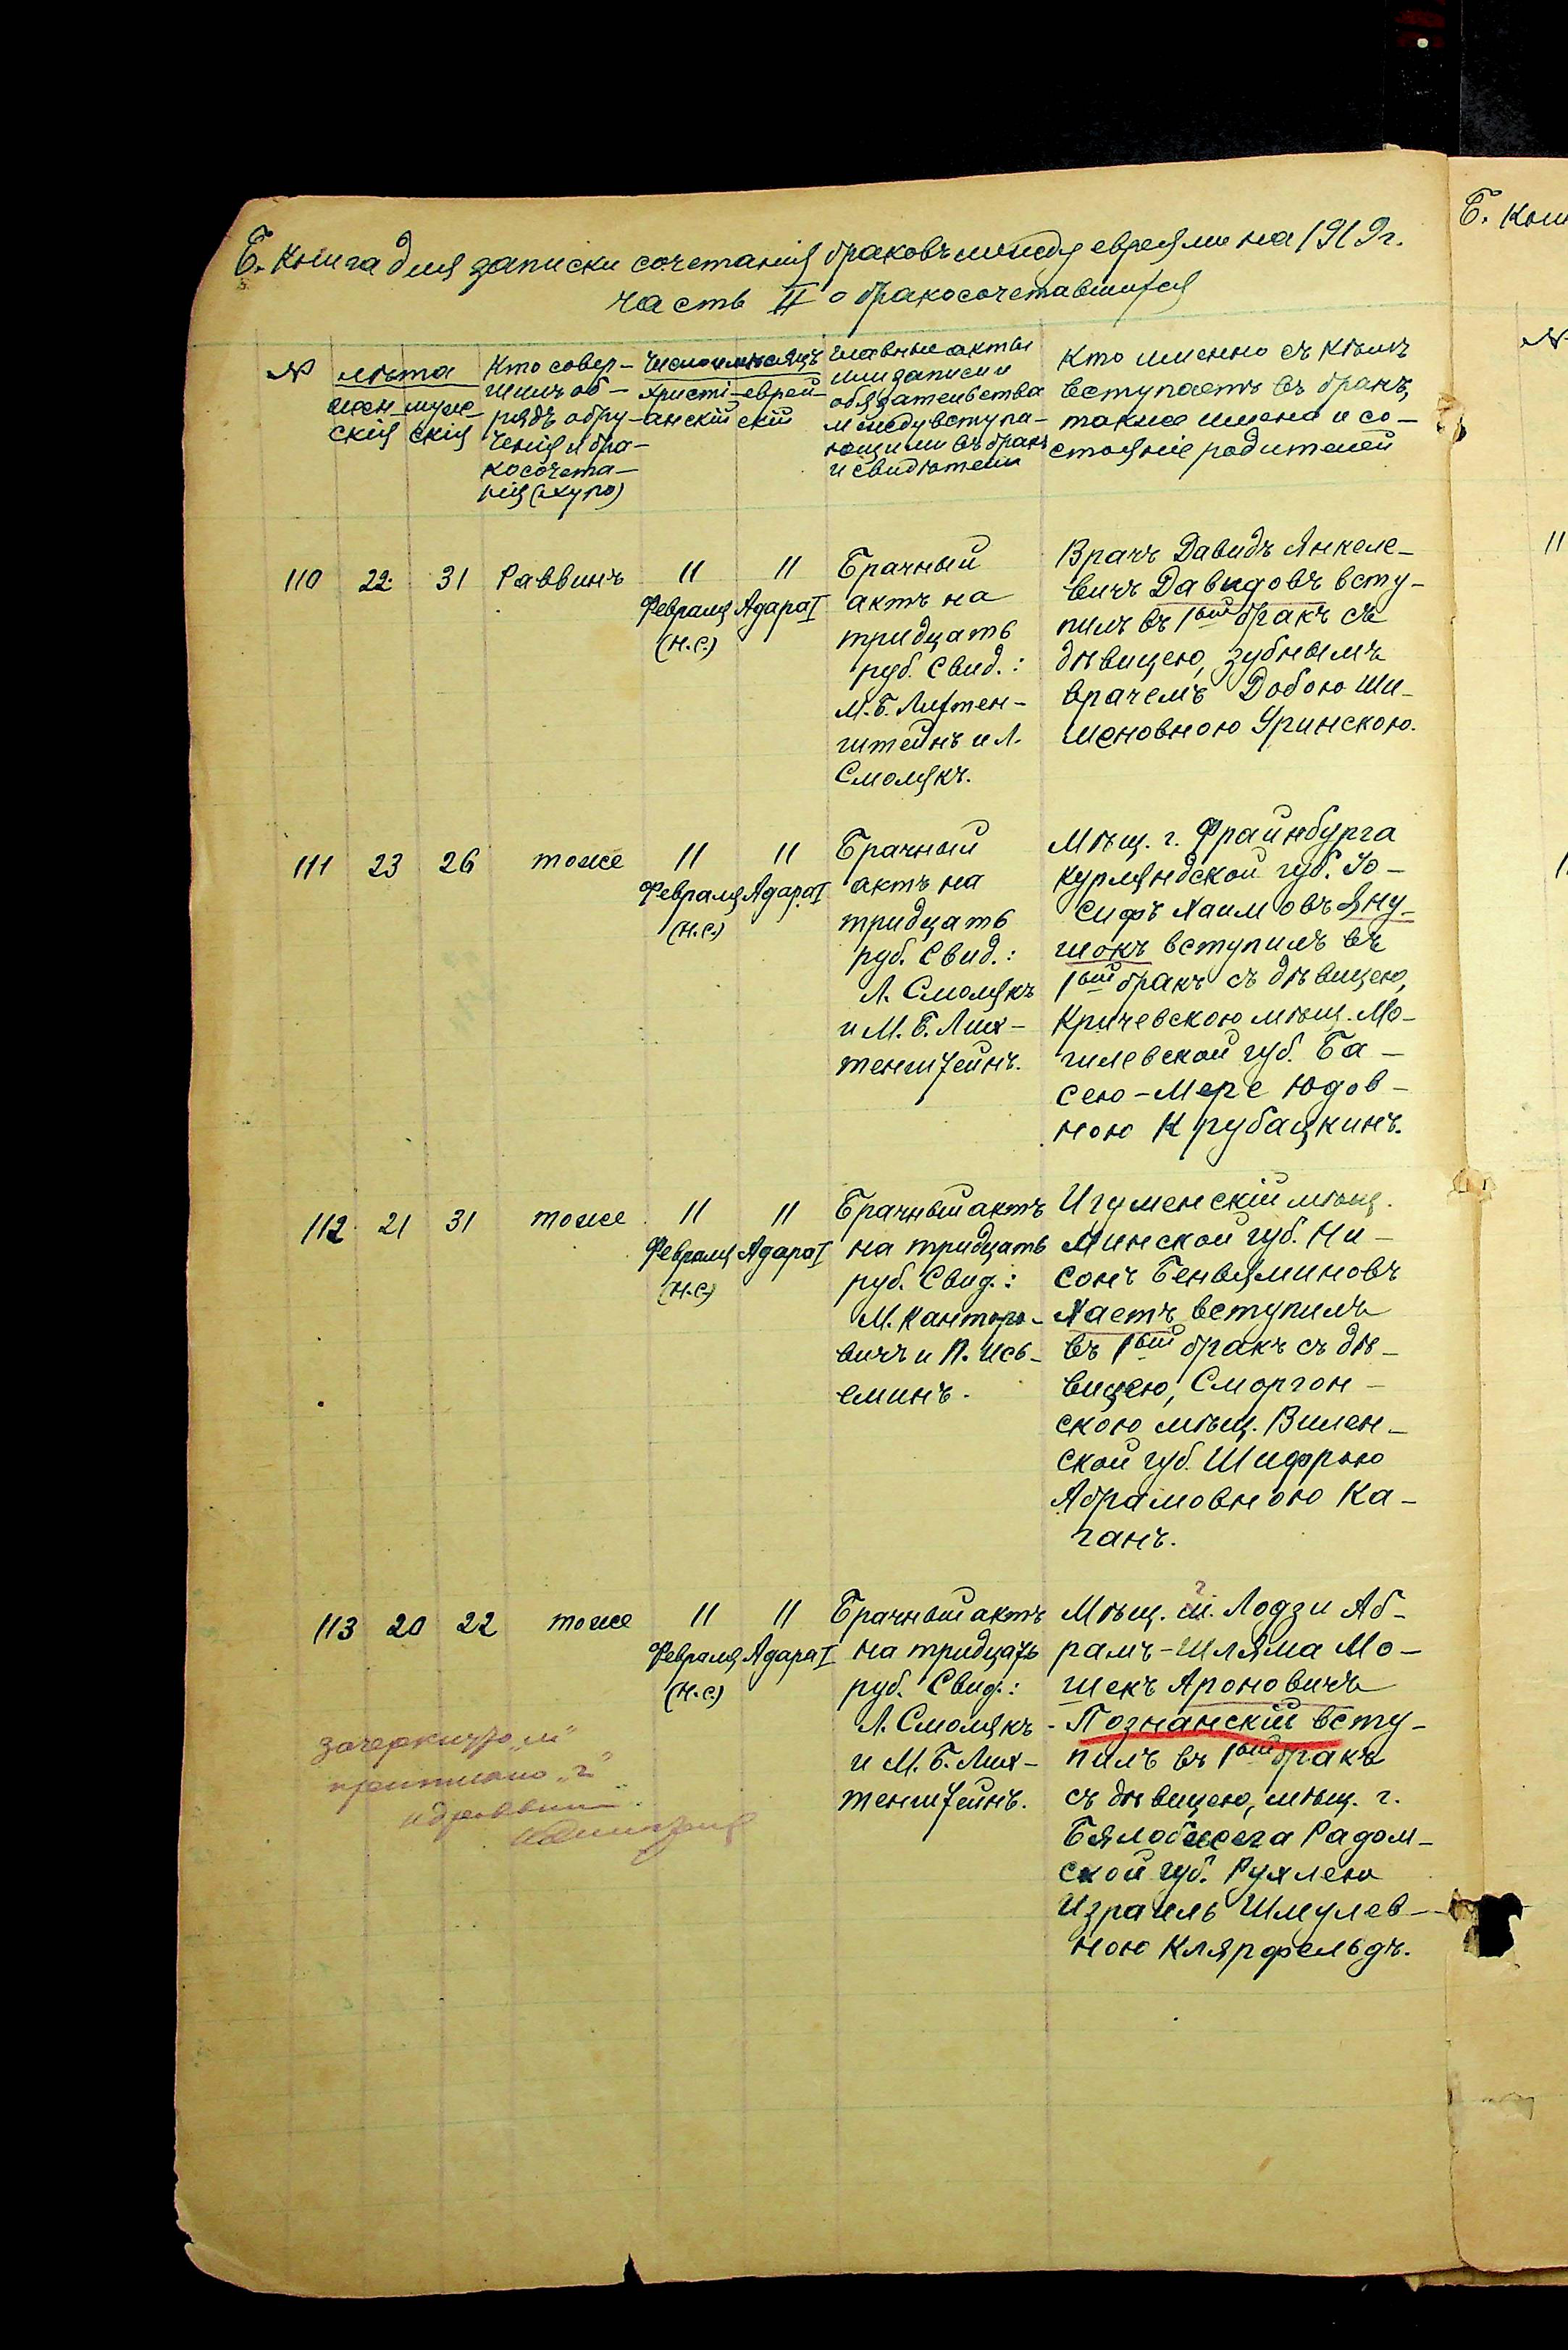 Б. Книга для записки сочетанія браковъ между евреями на 1919 г.
часть II о бракосочетавшихся
№
лѣта
жен-
скія
муж-
скія
Кто совер-
шилъ об-
рядъ обру-
ченія и бра-
косочета-
нія (хупо)
Число и мѣсяцъ
христі-
анскій
еврей-
скій
Главные акты
или записи и
обязательства
между вступа-
ющими въ бракъ
и свидѣтели
Кто именно съ кѣмъ
вступаетъ въ бракъ,
также имена и со-
стояніе родителей
110 22 31 Раввинъ
11
Февраля
(н.с.)
11
Адара I
Брачный
актъ на
тридцать
руб. Свид.:
М. Б. Лихтен-
штейнъ и Л.
Смолякъ.
Врачъ Давидъ Янкеле-
вичъ Давидовъ всту-
пилъ въ 1ый бракъ съ
дѣвицею, зубнымъ
врачемъ Добою Ши-
меновною Уринскою.
111 23 26 тоже
11
Февраля
(н.с.)
11
Адара I
Брачный
актъ на
тридцать
руб. Свид.:
Л. Смолякъ
и М. Б. Лих-
тенштейнъ.
Мѣщ. г. Фрайнбурга
Курляндской губ. Іо-
сифъ Хаимовъ Яну-
шокъ вступилъ въ
1ый бракъ съ дѣвицею,
Кричевскою мѣщ. Мо-
гилевской губ. Ба-
сею-Мере Юдов-
ною Крубацкинъ.
112 21 31 тоже
11
Февраля
(н.с.)
11
Адара I
Брачный актъ
на тридцать
руб. Свид.:
М. Канторо-
вичъ и П. Ись-
еминъ.
Игуменскій мѣщ.
Минской губ. Ни-
сонъ Беньяминовъ
Хаетъ вступилъ
въ 1ый бракъ съ дѣ-
вицею, Сморгон-
скою мѣщ. Вилен-
ской губ. Шифрою
Абрамовною Ка-
ганъ.
113 20 22 тоже
11
Февраля
(н.с.)
11
Адара I
Брачный актъ
на тридцать
руб. Свид.:
Л. Смолякъ
и М. Б. Лих-
тенштейнъ.
Мѣщ. г. Лодзи Аб-
рамъ-Шляма Мо-
шекъ Ароновичъ
Познанскій всту-
пилъ въ 1ый бракъ
съ дѣвицею, мѣщ. г.
Бялобжега Радом-
ской губ. Рухлею
Израиль Шмулев-
ною Клярфельдъ.
зачеркнуто „м"
приписано „г"
Б. Кни
№
11